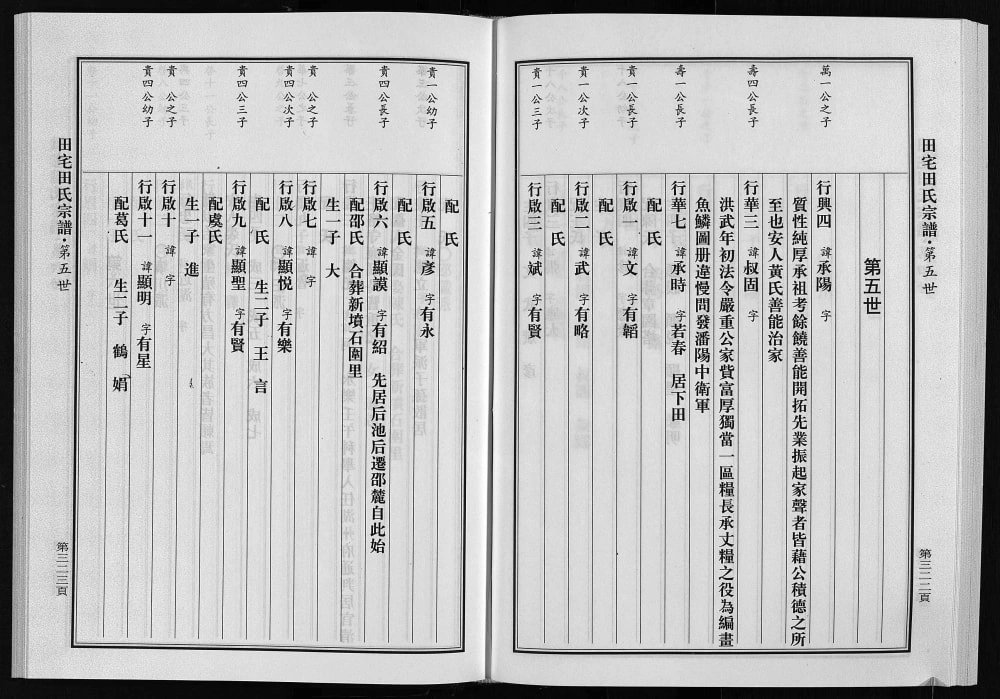 田宅田氏宗譜·第五世
第三二二頁
第五世
萬一公之子
行興四 諱承陽 字
質性純厚承祖考餘饒善能開拓先業振起家聲者皆藉公積德之所
至也安人黃氏善能治家
壽四公長子
行華三 諱叔固 字
洪武年初法令嚴重公家貲富厚獨當一區糧長承丈糧之役為編畫
魚鱗圖册違慢問發潘陽中衛軍
壽一公長子
行華七 諱承時 字若春 居下田
配 氏
貴一公長子
行啟一 諱文 字有韜
配 氏
貴一公次子
行啟二 諱武 字有略
配 氏
貴一公三子
行啟三 諱斌 字有賢
配 氏
貴一公幼子
行啟五 諱彥 字有永
配 氏
貴四公長子
行啟六 諱顯謨 字有紹 先居后池后遷邵麓自此始
配邵氏 合葬新墳石圍里
生一子 大
貴 公之子
行啟七 諱 字
貴四公次子
行啟八 諱顯悦 字有樂
配 氏 生二子 王 言
貴四公三子
行啟九 諱顯聖 字有賢
配虞氏
生一子 進
貴 公之子
行啟十 諱 字
貴四公幼子
行啟十一 諱顯明 字有星
配葛氏 生二子 鶴 娟
田宅田氏宗譜·第五世
第三二三頁